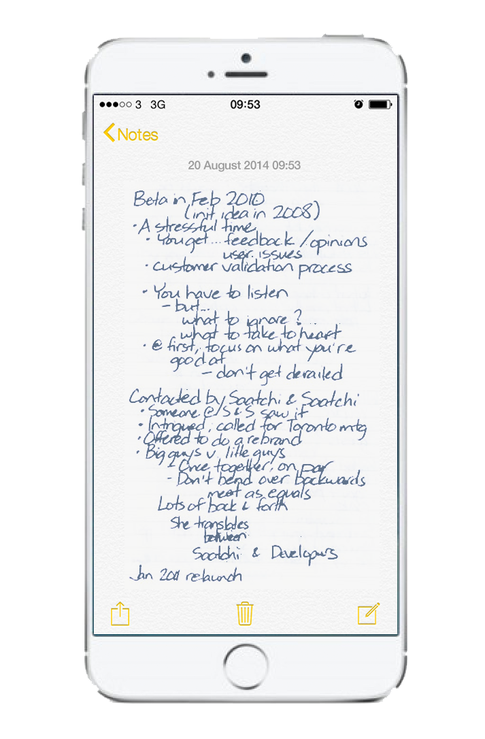 3 3G 09:53
Notes
20 August 2014 09:53
Beta in Feb 2010
(init idea in 2008)
• A stressful time
• You get... feedback / opinions
user issues
• customer validation process
• You have to listen
– but...
what to ignore?...
what to take to heart
• @ first, focus on what you're
good at
– don't get derailed
Contacted by Saatchi & Saatchi
• Someone @ S & S saw it
• Intrigued, called for Toronto mtg
• Offered to do a rebrand
• Big guys v. little guys
– Once together, on par
– Don't bend over backwards
meet as equals
Lots of back & forth
She translates
between
Saatchi & Developers
Jan 2011 relaunch